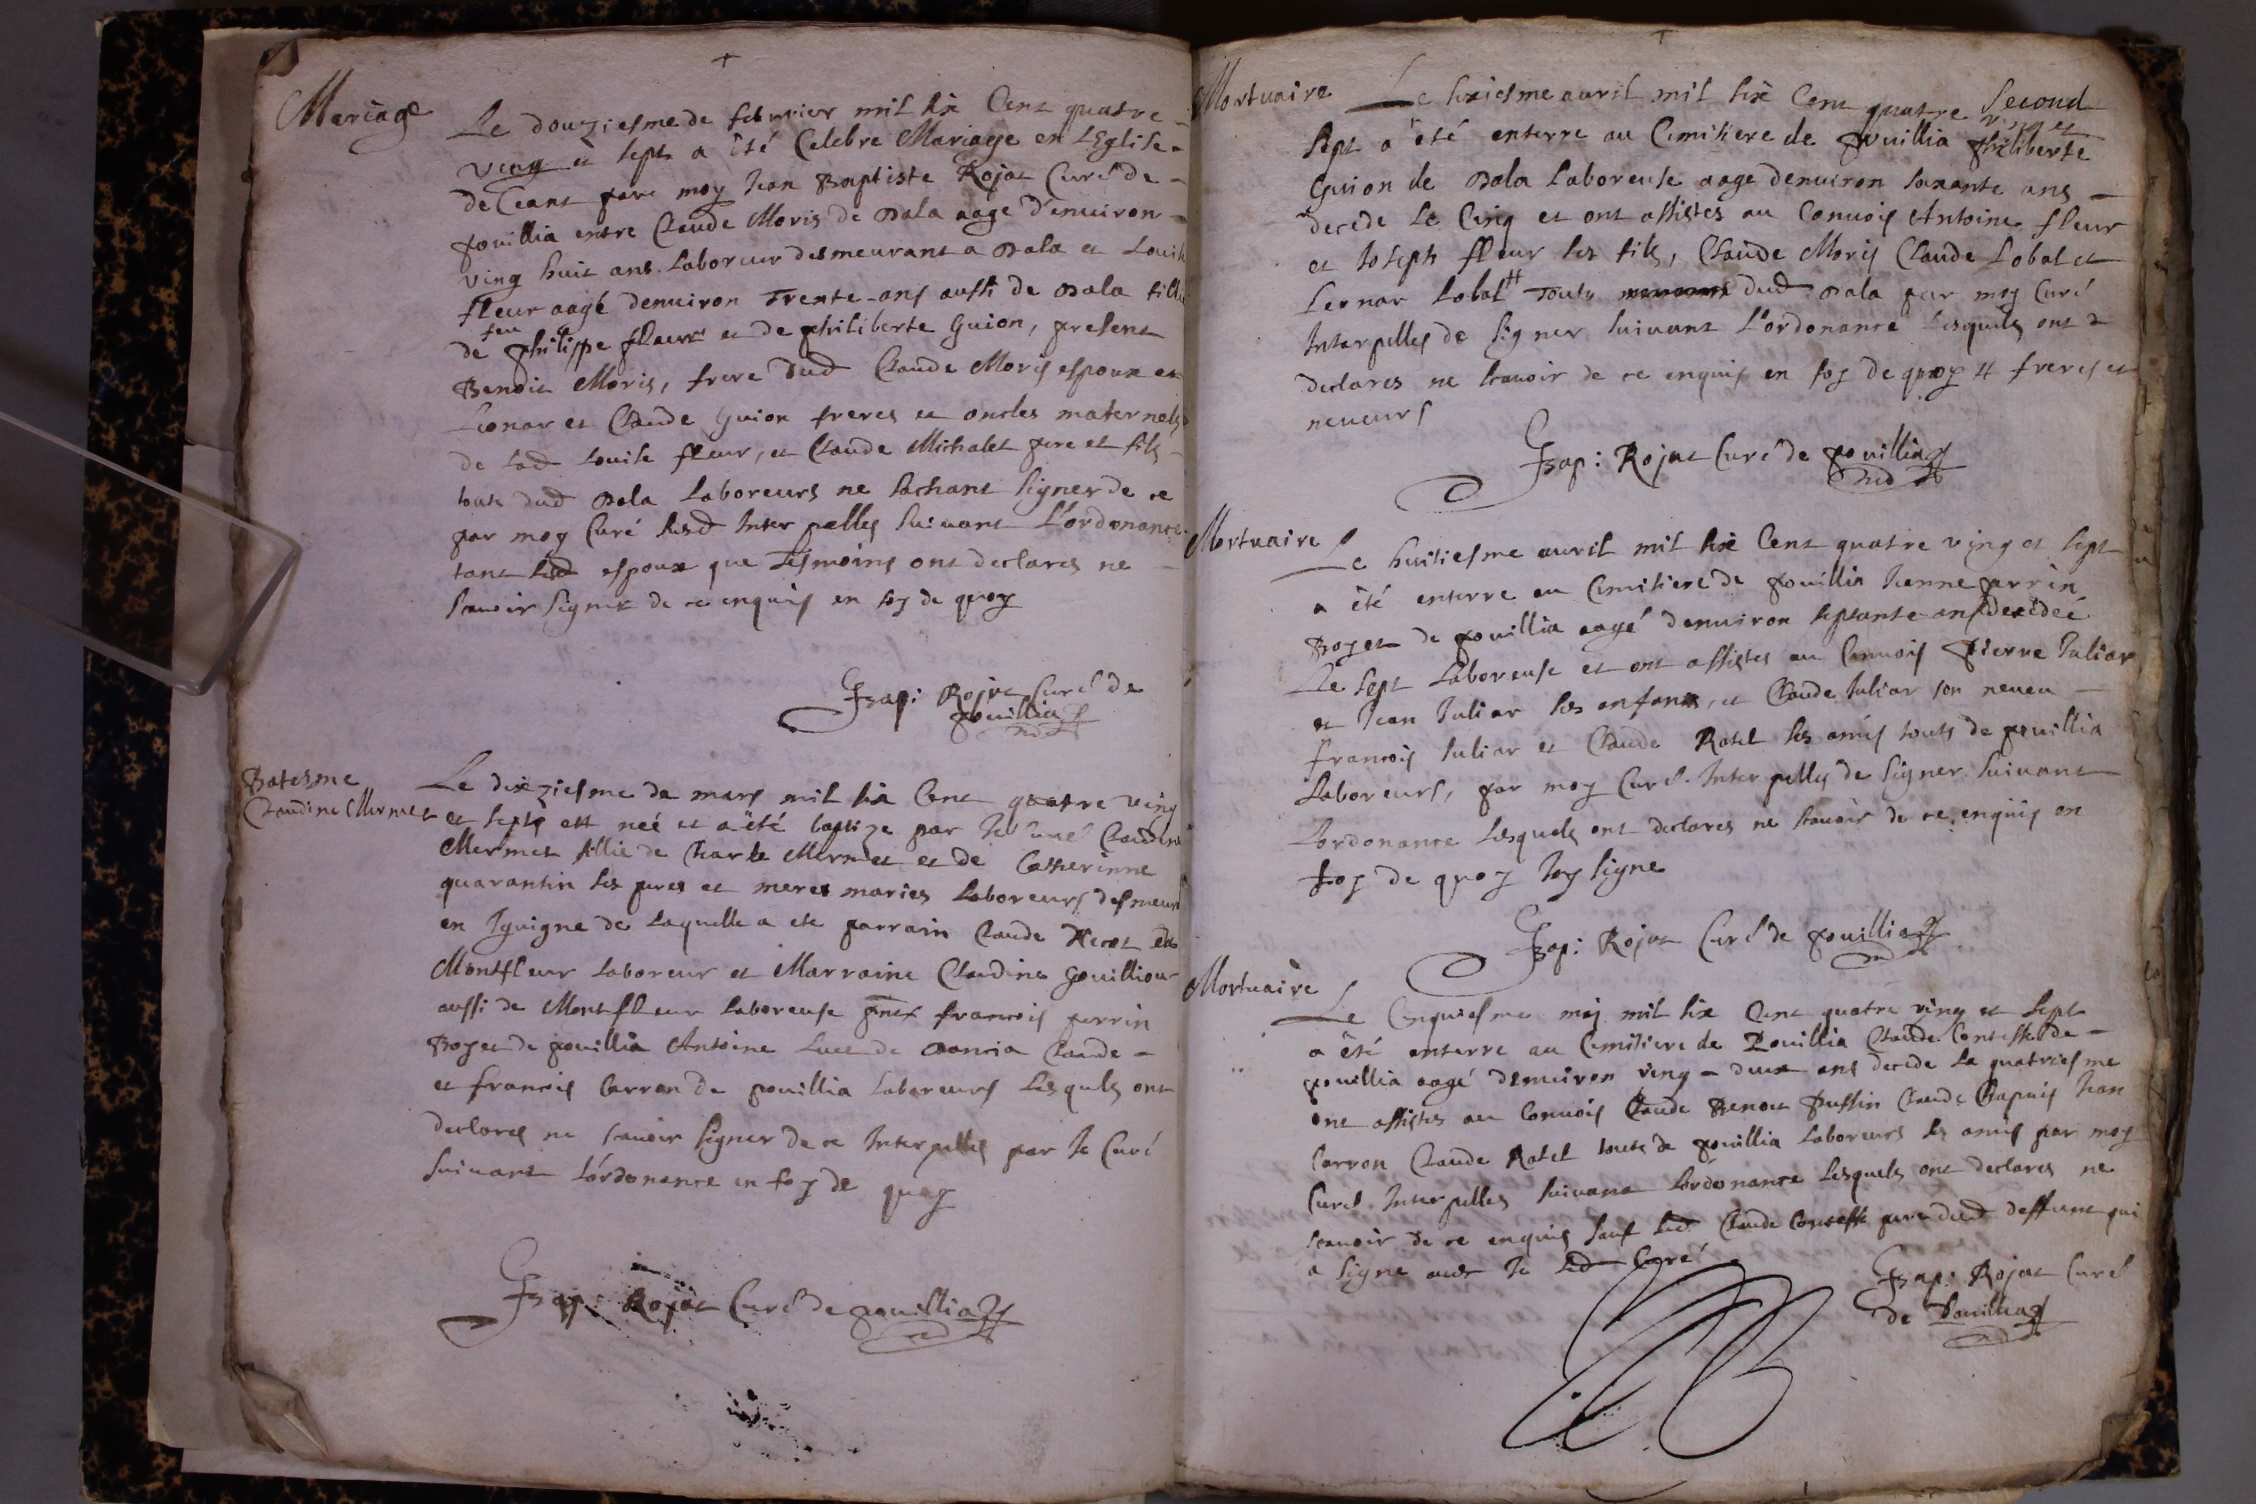 Mariage
Le douziesme de febvrier mil six Cent quatre
ving et sept a été Celebre Mariage en LEglise
de Ceant par moy Jean Baptiste Rojat Curé de
pouillia entre Claude Moris de Dala aage d'environ
ving huit ans Laboreur desmeurant a Dala et Louise
fleur aagé denuiron Trente ans aussi de Dala fille
de feu philippe fleur et de philiberte Guion, present
Benoit Moris, frere dud Claude Moris espoux et
Lionar et Claude Guion freres et oncles maternels
de Lad Louise fleur, et Claude Michalet pere et fils
touts dud Dala Laboreurs ne sachant signer de ce
par moy Curé susd Interpelles suivant L'ordonance
tant lesd espoux que Tesmoins ont declares ne
scavoir signer de ce enquis en foy de quoy
JBap: Rojat Curé de
pouillia
Batesme
Claudine Mermet
Le dixziesme de mars mil six Cent quatre ving
et sept est neé et a été baptize par Je Curé Claudine
Mermet fillie de Charle Mermet et de Catherinne
quarantin ses peres et meres maries Laboreurs desmeur
en Iguigne de Laquelle a ete parrain Claude de
Montfleur Laboreur et Marraine Claudine Gouilliou
aussi de Montfleur Laboreuse pnts francois perrin
Boyet de pouillia Antoine Luce de Claude
et francois Carron de pouillia Laboreurs Lesquels ont
declares ne scavoir signer de ce Interpelles par Je Curé
suivant L'ordonance en foy de quoy
JBap: Rojat Curé de pouillia
Mortuaire
Le sixiesme avril mil six Cent quatre ving et Second
sept a été enterre au Cimitiere de pouillia philiberte
Guion de Dala Laboreuse aage denuiron soixante ans
decede Le Cinq et ont assistes au Conuois Antoine fleur
et Joseph fleur ses fils, Claude Moris Claude Lobat et
Leonar Lobat # Touts dud Dala par moy Curé
Interpelles de signer suivant L'ordonance Lesquels ont
declares ne scauoir de ce enquis en foy de quoy # freres et
neueurs
JBap: Rojat Curé de pouillia
Mortuaire
Le huitiesme avril mil six Cent quatre ving et sept
a été enterre au Cimitiere de pouillia Jeanne perrin
Boyet de pouillia aagé denuiron septante ans decedeé
Le sept Laboreuse et ont assistes au Conuois pierre Juliar
et Jean Juliar ses enfans, et Claude Juliar son neueu
francois Juliar et Claude Ratel ses amis touts de pouillia
Laboreurs, par moy Curé Interpelles de signer suivant
Lordonance Lesquels ont declares ne scauoir de ce enquis en
foy de quoy Jey signe
JBap: Rojat Curé de pouillia
Mortuaire
Le Cinquiesme mij mil six Cent quatre ving et sept
a été enterre au Cimitiere de Pouillia Claude Contesse de
pouillia aagé denuiron ving deux ans decede Le quatriesme
ont assistes au Conuois Claude Benoit Pussin Claude Chapuis Jean
Carron Claude Ratel touts de pouillia Laboreurs ses amis par moy
Curé Interpelles suivant Lordonance Lesquels ont declares ne
scauoir de ce enquis sauf Led Claude Contesse pere dud deffunt qui
a signe avec Je Led Curé
JBap: Rojat Curé
de Pouillia